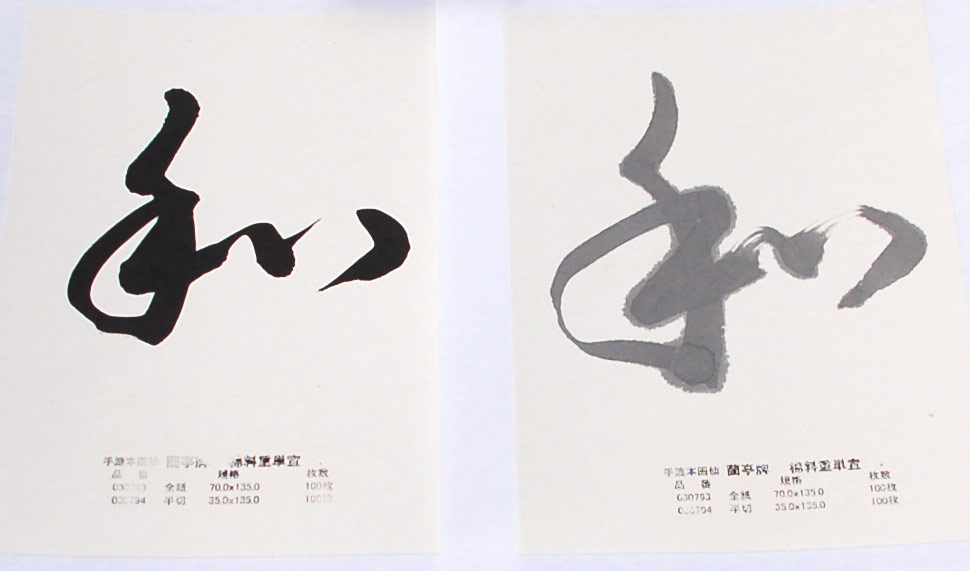 和
手漉本画仙 蘭亭牌 棉料重単宣
品 番 規格 枚数
030793 全紙 70.0x135.0 100枚
030794 半切 35.0x135.0 100枚
和
手漉本画仙 蘭亭牌 棉料重単宣
品 番 規格 枚数
030793 全紙 70.0x135.0 100枚
030794 半切 35.0x135.0 100枚